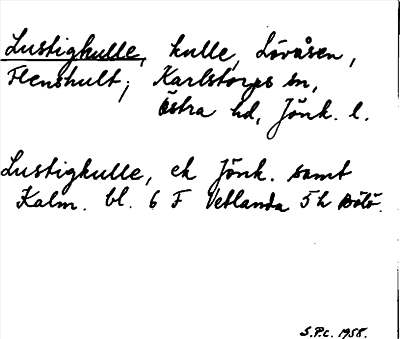 Lustigkulle, kulle, Lövåsen,
Flenshult; Karlstorps sn,
Östra hd, Jönk. l.
Lustigkulle, ek Jönk. samt
Kalm. bl. 6 F Vetlanda 5h
S.P.C. 1958.